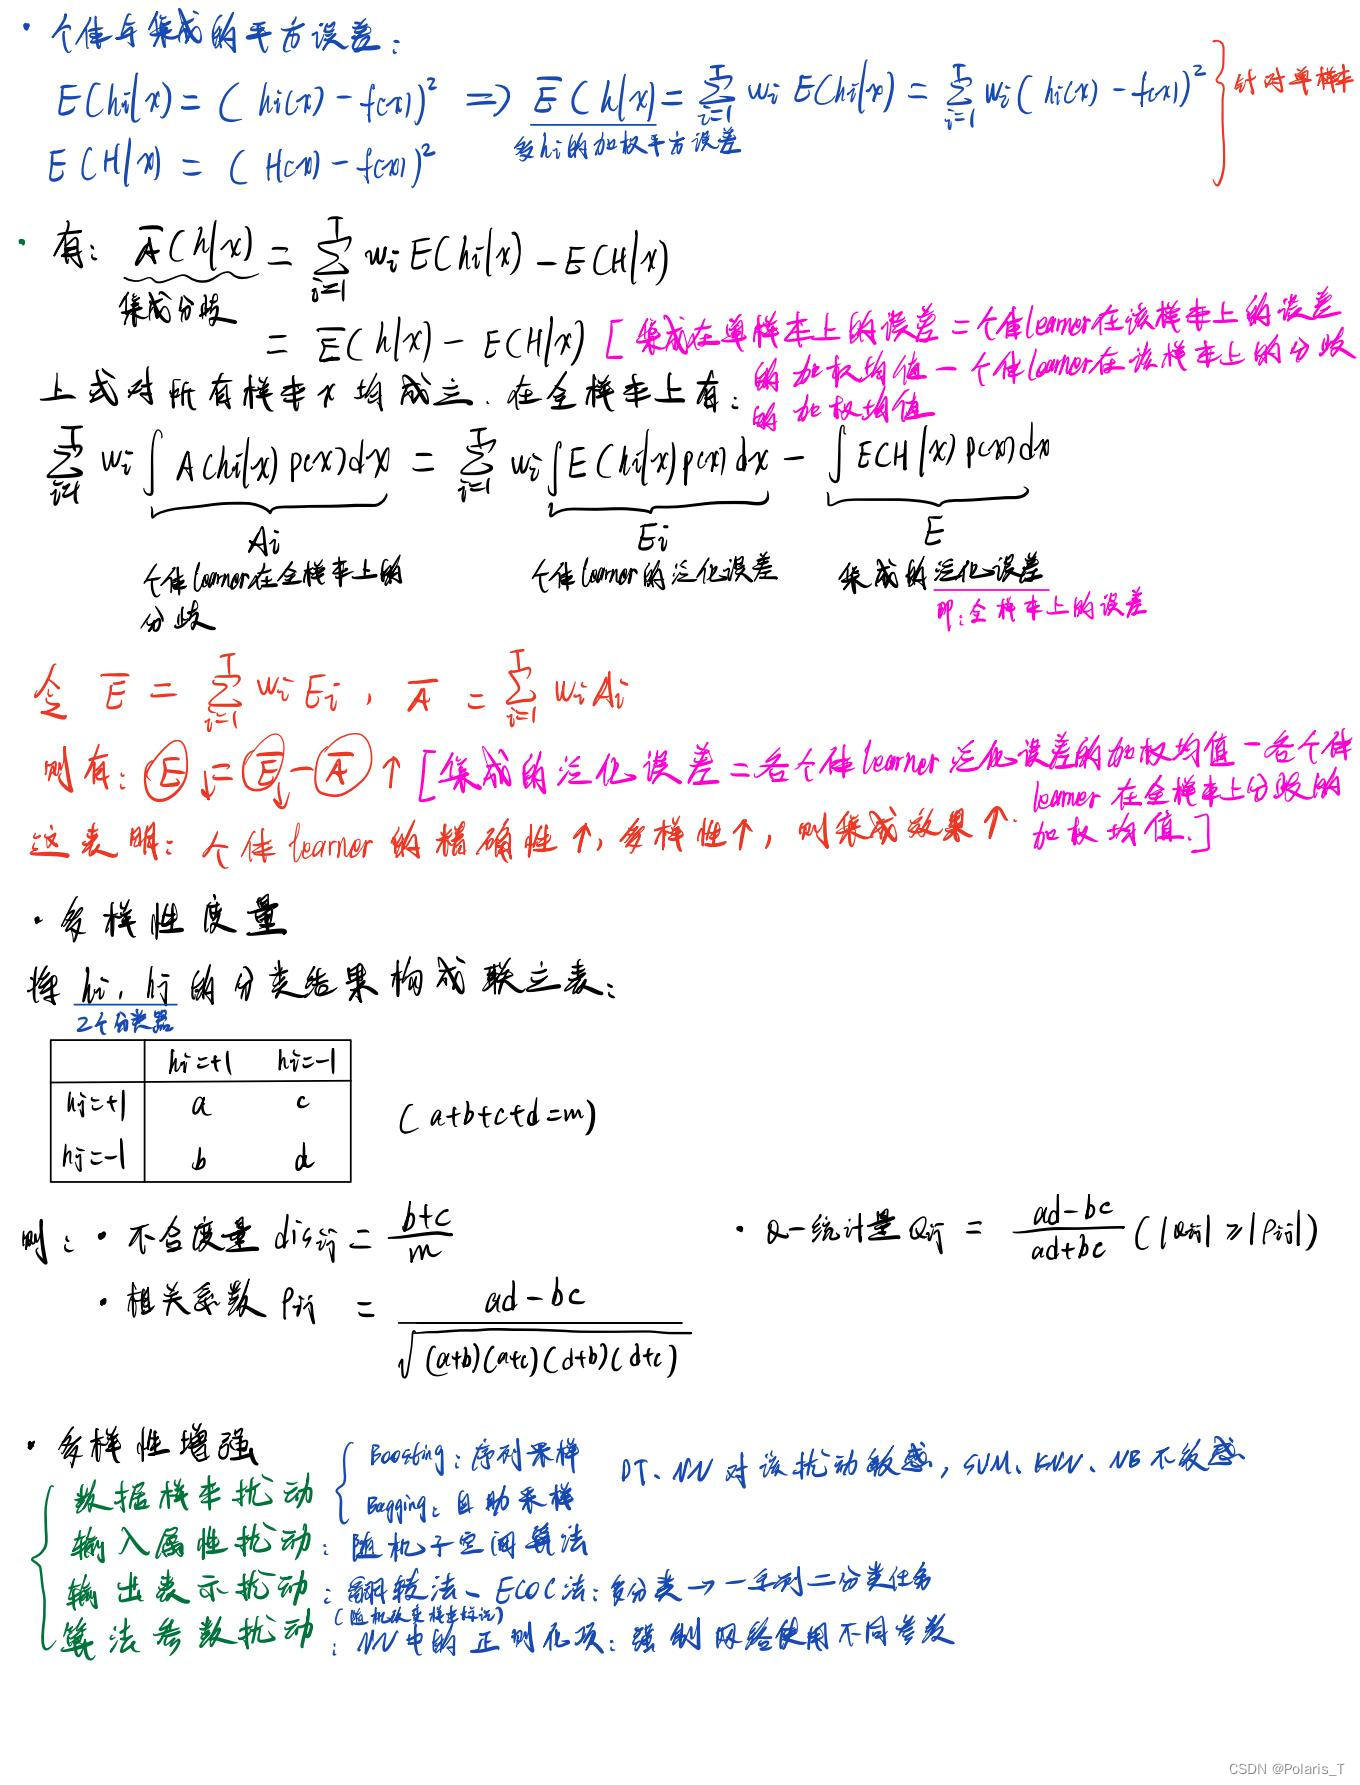 · 个体与集成的平方误差:
E(hi|x) = (hi(x) - f(x))² => E̅(h|x) = ∑_{i=1}^{T} wi E(hi|x) = ∑_{i=1}^{T} wi (hi(x) - f(x))² } 针对单样本
多hi的加权平方误差
E(H|x) = (H(x) - f(x))²
· 有: A̅(h|x) = ∑_{i=1}^{T} wi E(hi|x) - E(H|x)
集成分歧
= E̅(h|x) - E(H|x) [集成在单样本上的误差 = 个体learner在该样本上的误差
的加权均值 - 个体learner在该样本上的分歧
的加权均值
上式对所有样本x均成立. 在全样本上有:
∑_{i=1}^{T} wi ∫ A(hi|x) p(x)dx = ∑_{i=1}^{T} wi ∫ E(hi|x) p(x)dx - ∫ E(H|x) p(x)dx
Ai Ei E
个体learner在全样本上的分歧 个体learner的泛化误差 集成的泛化误差
即:全样本上的误差
令 E̅ = ∑_{i=1}^{T} wi Ei, A̅ = ∑_{i=1}^{T} wi Ai
则有: E↓ = E̅↓ - A̅↑ [集成的泛化误差 = 各个体learner泛化误差的加权均值 - 各个体
learner在全样本上分歧的
加权均值.]
这表明: 个体learner的精确性↑, 多样性↑, 则集成效果↑.
· 多样性度量
将 hi, hj 的分类结果构成联立表:
2个分类器
hi=+1 hi=-1
hj=+1 a c
hj=-1 b d
(a+b+c+d=m)
则: · 不合度量 disij = (b+c)/m
· Q-统计量 Qij = (ad-bc)/(ad+bc) (|Qij| ≥ |ρij|)
· 相关系数 ρij = (ad-bc)/√((a+b)(a+c)(d+b)(d+c))
· 多样性增强
数据样本扰动 { Boosting: 序列采样
Bagging: 自助采样
DT、NN 对该扰动敏感, SVM、KNN、NB 不敏感
输入属性扰动: 随机子空间算法
输出表示扰动: 翻转法、ECOC法: 多分类→一系列二分类任务
(随机改变样本标记)
算法参数扰动: NN中的正则化项: 强制网络使用不同参数
CSDN @Polaris_T